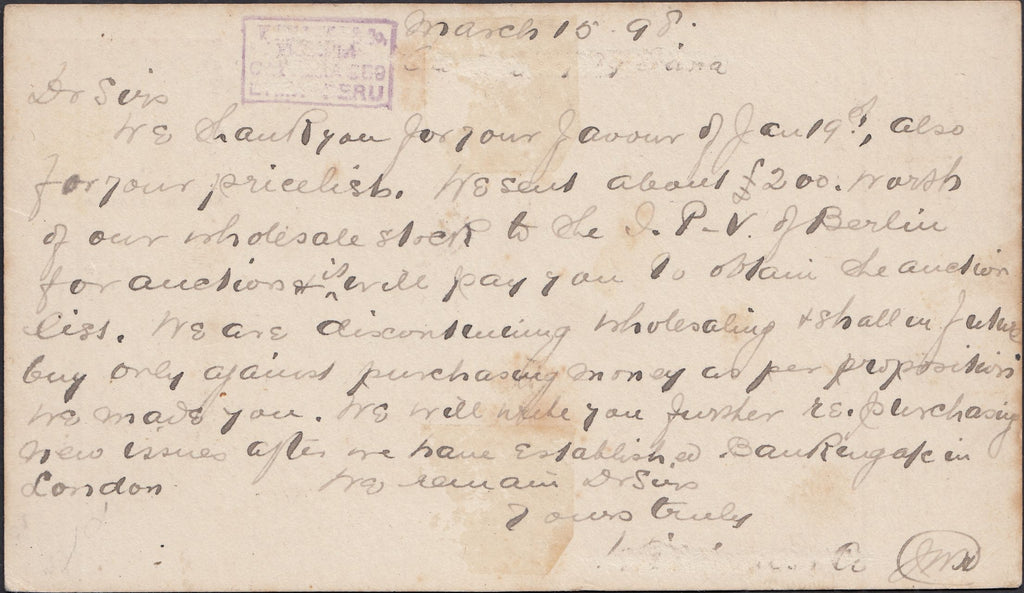 March 15 98.
LIMA PERU
Dr Sirs
We thank you for your favour of Jan 19th, also
for your pricelist. We sent about £200. worth
of our wholesale stock to the I. P-V. of Berlin
for auction & it will pay you to obtain the auction
list. We are discontinuing wholesaling & shall in future
buy only against purchasing money as per proposition
we made you. We will write you further re. purchasing
new issues after we have established Banking a/c in
London We remain Dr Sirs
Yours truly